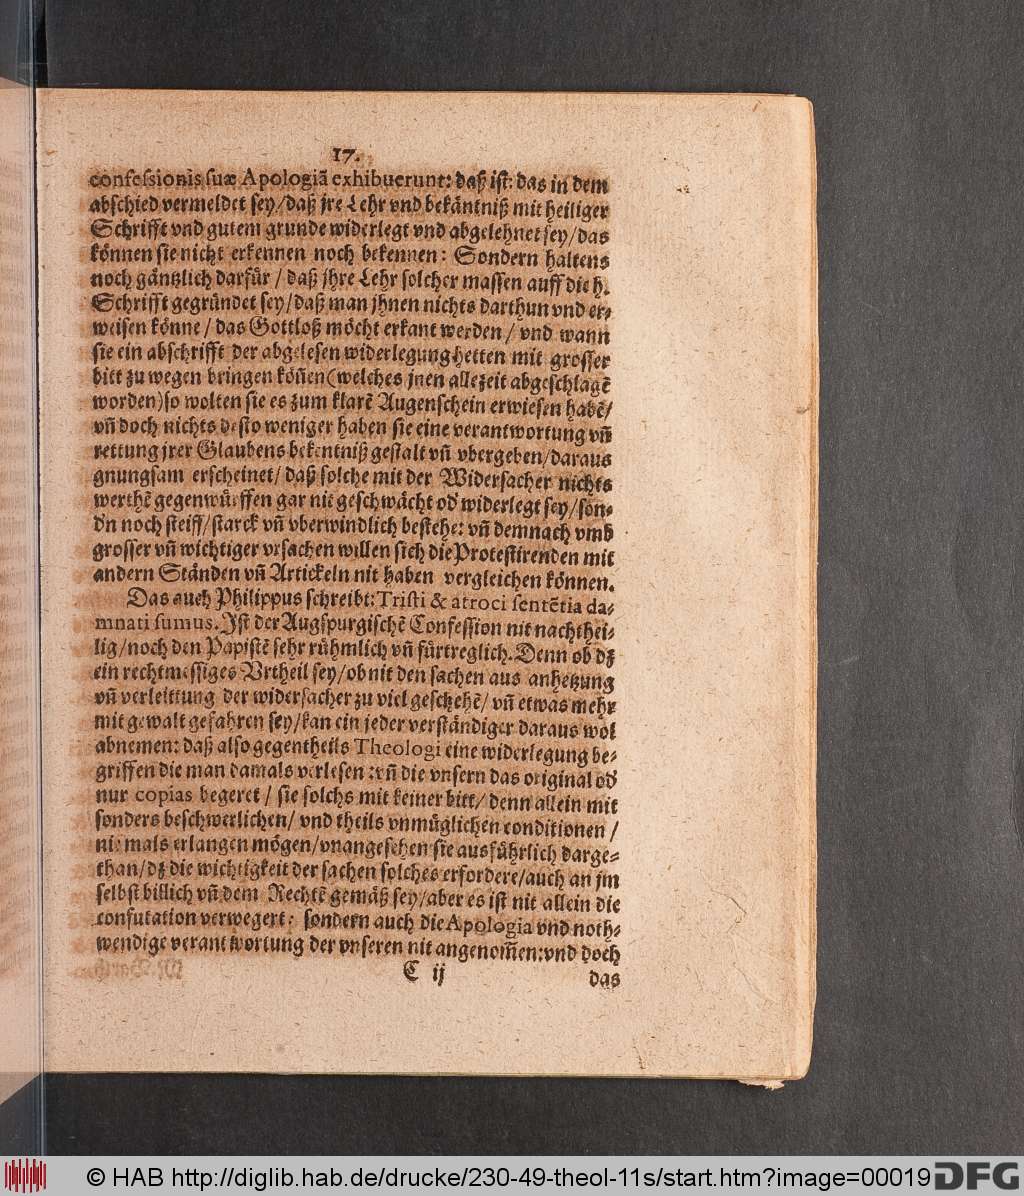 17.
confeſsionis ſuæ Apologiã exhibuerunt: daß iſt: das in dem
abſchied vermeldet ſey/daß jre Lehr vnd bekäntniß mit heiliger
Schrifft vnd gutem grunde widerlegt vnd abgelehnet ſey/das
können ſie nicht erkennen noch bekennen: Sondern haltens
noch gäntzlich darfür / daß jhre Lehr ſolcher maſſen auff die h.
Schrifft gegründet ſey/daß man jhnen nichts darthun vnd er-
weiſen könne / das Gottloß möcht erkant werden / vnd wann
ſie ein abſchrifft der abgeleſen widerlegung hetten mit groſſer
bitt zu wegen bringen köñen(welches jnen allezeit abgeſchlagẽ
worden)ſo wolten ſie es zum klarẽ Augenſchein erwieſen habẽ/
vñ doch nichts deſto weniger haben ſie eine verantwortung vñ
rettung jrer Glaubens bekentniß geſtalt vñ vbergeben/daraus
gnungſam erſcheinet/ daß ſolche mit der Widerſacher nichts
werthẽ gegenwürffen gar nit geſchwächt od' widerlegt ſey/ſon-
d'n noch ſteiff/ſtarck vñ vberwindlich beſtehe: vñ demnach vmb
groſſer vñ wichtiger vrſachen willen ſich die Proteſtirenden mit
andern Ständen vñ Artickeln nit haben vergleichen können.
Das auch Philippus ſchreibt: Triſti & atroci ſentẽtia da-
mnati ſumus. Iſt der Augſpurgiſchẽ Confeſſion nit nachthei-
lig/noch den Papiſtẽ ſehr rühmlich vñ fürtreglich. Denn ob dz
ein rechtmeſſiges Vrtheil ſey/ob nit den ſachen aus anhetzung
vñ verleittung der widerſacher zu viel geſchehẽ/ vñ etwas mehr
mit gewalt gefahren ſey/kan ein jeder verſtändiger daraus wol
abnemen: daß alſo gegentheils Theologi eine widerlegung be-
griffen die man damals verleſen: vñ die vnſern das original od'
nur copias begeret / ſie ſolchs mit keiner bitt/ denn allein mit
ſonders beſchwerlichen/ vnd theils vnmüglichen conditionen /
niemals erlangen mögen/vnangeſehen ſie ausführlich darge-
than/dz die wichtigkeit der ſachen ſolches erfordere/auch an jm
ſelbſt billich vñ dem Rechtẽ gemäß ſey/aber es iſt nit allein die
confutation verwegert: ſondern auch die Apologia vnd noth-
wendige verantwortung der vnſeren nit angenom̃en:vnd doch
C ij
das
© HAB http://diglib.hab.de/drucke/230-49-theol-11s/start.htm?image=00019
DFG